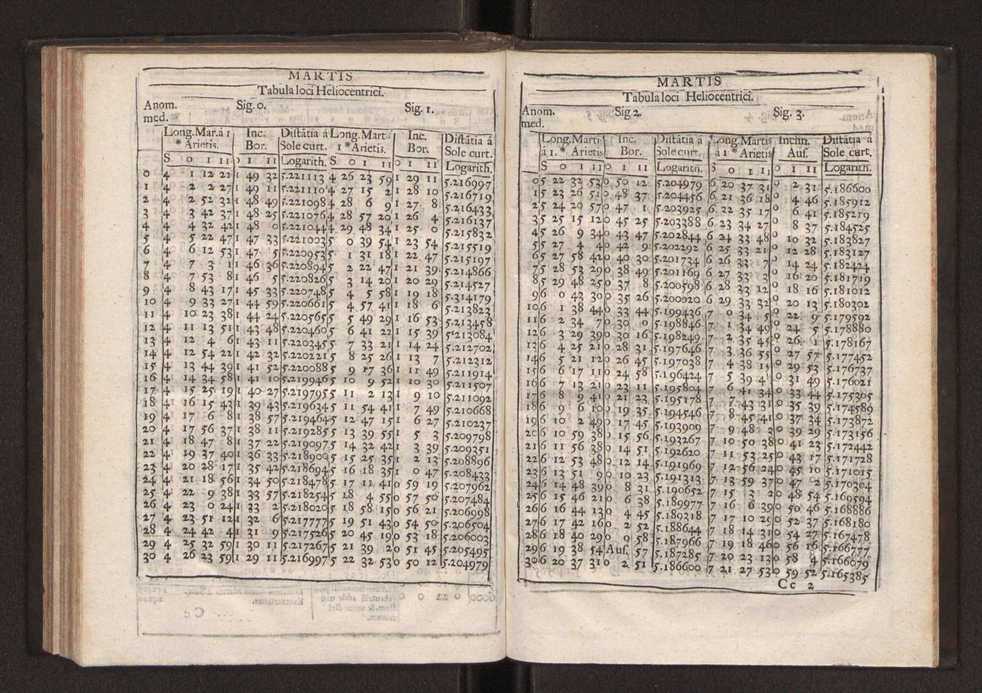 MARTIS
Tabula loci Heliocentrici.
Anom. med. Sig. 0. Sig. 1.
Long. Mar. à 1 * Arietis. Inc. Bor. Distãtia á Sole curt. Long. Mart. 1 * Arietis. Inc. Bor. Distãtia á Sole curt.
S 0 1 11 0 1 11 Logarith. S 0 1 11 0 1 11 Logarith.
0 4 1 12 21 1 49 32 5.221113 4 26 23 59 1 29 11 5.216997
1 4 2 2 27 1 49 11 5.221110 4 27 15 2 1 28 10 5.216719
2 4 2 52 32 1 48 49 5.221098 4 28 6 9 1 27 8 5.216433
3 4 3 42 37 1 48 25 5.221076 4 28 57 20 1 26 4 5.216137
4 4 4 32 42 1 48 0 5.221044 4 29 48 34 1 25 0 5.215832
5 4 5 22 47 1 47 33 5.221003 5 0 39 54 1 23 54 5.215519
6 4 6 12 53 1 47 5 5.220953 5 1 31 18 1 22 47 5.215197
7 4 7 3 11 1 46 36 5.220894 5 2 22 47 1 21 39 5.214866
8 4 7 53 8 1 46 5 5.220826 5 3 14 20 1 20 29 5.214527
9 4 8 43 17 1 45 33 5.220748 5 4 5 58 1 19 18 5.214179
10 4 9 33 27 1 44 59 5.220661 5 4 57 41 1 18 6 5.213823
11 4 10 23 38 1 44 24 5.220565 5 5 49 29 1 16 53 5.213458
12 4 11 13 51 1 43 48 5.220460 5 6 41 22 1 15 39 5.213084
13 4 12 4 6 1 43 11 5.220345 5 7 33 21 1 14 24 5.212702
14 4 12 54 22 1 42 32 5.220221 5 8 25 26 1 13 7 5.212312
15 4 13 44 39 1 41 52 5.220088 5 9 17 36 1 11 49 5.211914
16 4 14 34 58 1 41 10 5.219946 5 10 9 52 1 10 30 5.211507
17 4 15 25 19 1 40 27 5.219795 5 11 2 13 1 9 10 5.211092
18 4 16 15 43 1 39 43 5.219634 5 11 54 41 1 7 49 5.210668
19 4 17 6 8 1 38 57 5.219464 5 12 47 15 1 6 27 5.210237
20 4 17 56 37 1 38 11 5.219285 5 13 39 55 1 5 3 5.209798
21 4 18 47 8 1 37 22 5.219097 5 14 32 42 1 3 39 5.209351
22 4 19 37 40 1 36 33 5.218900 5 15 25 35 1 2 13 5.208896
23 4 20 28 17 1 35 42 5.218694 5 16 18 35 1 0 47 5.208433
24 4 21 18 56 1 34 50 5.218478 5 17 11 41 0 59 19 5.207962
25 4 22 9 38 1 33 57 5.218254 5 18 4 55 0 57 50 5.207484
26 4 23 0 24 1 33 2 5.218020 5 18 58 15 0 56 21 5.206998
27 4 23 51 12 1 32 6 5.217777 5 19 51 43 0 54 50 5.206504
28 4 24 42 4 1 31 9 5.217526 5 20 45 19 0 53 18 5.206003
29 4 25 32 59 1 30 11 5.217267 5 21 39 2 0 51 45 5.205495
30 4 26 23 59 1 29 11 5.216997 5 22 32 53 0 50 12 5.204979
MARTIS
Tabula loci Heliocentrici.
Anom. med. Sig 2. Sig. 3.
Long. Martis à 1. * Arietis Inc. Bor. Distãtia á Sole curt. Long. Martis à 1 * Arietis Inclin. Aus. Distãtia á Sole curt.
S 0 1 11 0 1 11 Logarith. S 0 1 11 0 1 11 Logarith.
0 5 22 32 53 0 50 12 5.204979 6 20 37 31 0 2 31 5.186600
1 5 23 26 51 0 48 37 5.204456 6 21 36 18 0 4 46 5.185912
2 5 24 20 57 0 47 1 5.203925 6 22 35 17 0 6 41 5.185219
3 5 25 15 12 0 45 25 5.203388 6 23 34 27 0 8 37 5.184525
4 5 26 9 34 0 43 47 5.202844 6 24 33 48 0 10 32 5.183827
5 5 27 4 4 0 42 9 5.202292 6 25 33 21 0 12 28 5.183127
6 5 27 58 42 0 40 30 5.201734 6 26 33 7 0 14 24 5.182424
7 5 28 53 29 0 38 49 5.201169 6 27 33 3 0 16 20 5.181719
8 5 29 48 25 0 37 8 5.200598 6 28 33 12 0 18 16 5.181012
9 6 0 43 30 0 35 26 5.200020 6 29 33 32 0 20 13 5.180302
10 6 1 38 44 0 33 44 5.199436 7 0 34 5 0 22 9 5.179592
11 6 2 34 7 0 30 0 5.198846 7 1 34 49 0 24 5 5.178880
12 6 3 29 39 0 30 16 5.198249 7 2 35 45 0 26 1 5.178167
13 6 4 25 21 0 28 31 5.197646 7 3 36 55 0 27 57 5.177452
14 6 5 21 12 0 26 45 5.197038 7 4 38 15 0 29 53 5.176737
15 6 6 17 11 0 24 58 5.196424 7 5 39 4 0 31 49 5.176021
16 6 7 13 21 0 23 11 5.195804 7 6 41 34 0 33 44 5.175305
17 6 8 9 41 0 21 23 5.195178 7 7 43 31 0 35 39 5.174589
18 6 9 6 10 0 19 35 5.194546 7 8 45 41 0 37 34 5.173872
19 6 10 2 49 0 17 45 5.193909 7 9 48 2 0 39 29 5.173156
20 6 10 59 38 0 15 56 5.193267 7 10 50 38 0 41 23 5.172442
21 6 11 56 38 0 14 51 5.192620 7 11 53 25 0 43 17 5.171728
22 6 12 53 48 0 12 14 5.191969 7 12 56 24 0 45 10 5.171015
23 6 13 51 9 0 10 23 5.191313 7 13 59 37 0 47 02 5.170304
24 6 14 48 39 0 8 31 5.190652 7 15 3 2 0 48 54 5.169594
25 6 15 46 21 0 6 38 5.189977 7 16 6 39 0 50 46 5.168886
26 6 16 44 13 0 4 45 5.189318 7 17 10 29 0 52 37 5.168180
27 6 17 42 16 0 2 52 5.188644 7 18 14 31 0 54 27 5.167478
28 6 18 40 29 0 0 58 5.187966 7 19 18 46 0 56 16 5.166777
29 6 19 38 54 Aus. 57 5.187285 7 20 23 13 0 58 4 5.166079
30 6 20 37 31 0 2 51 5.186600 7 21 27 53 0 59 52 5.165385
Cc 2